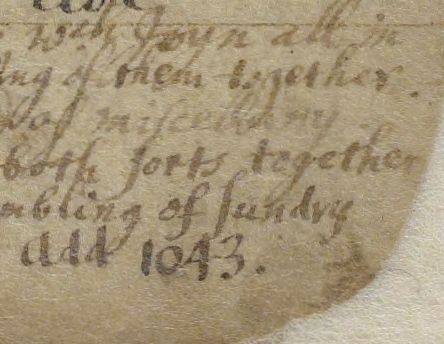 wch Joyn all in
ng of them together.
of miscellany
both sorts together
mbling of sundry
add 1043.